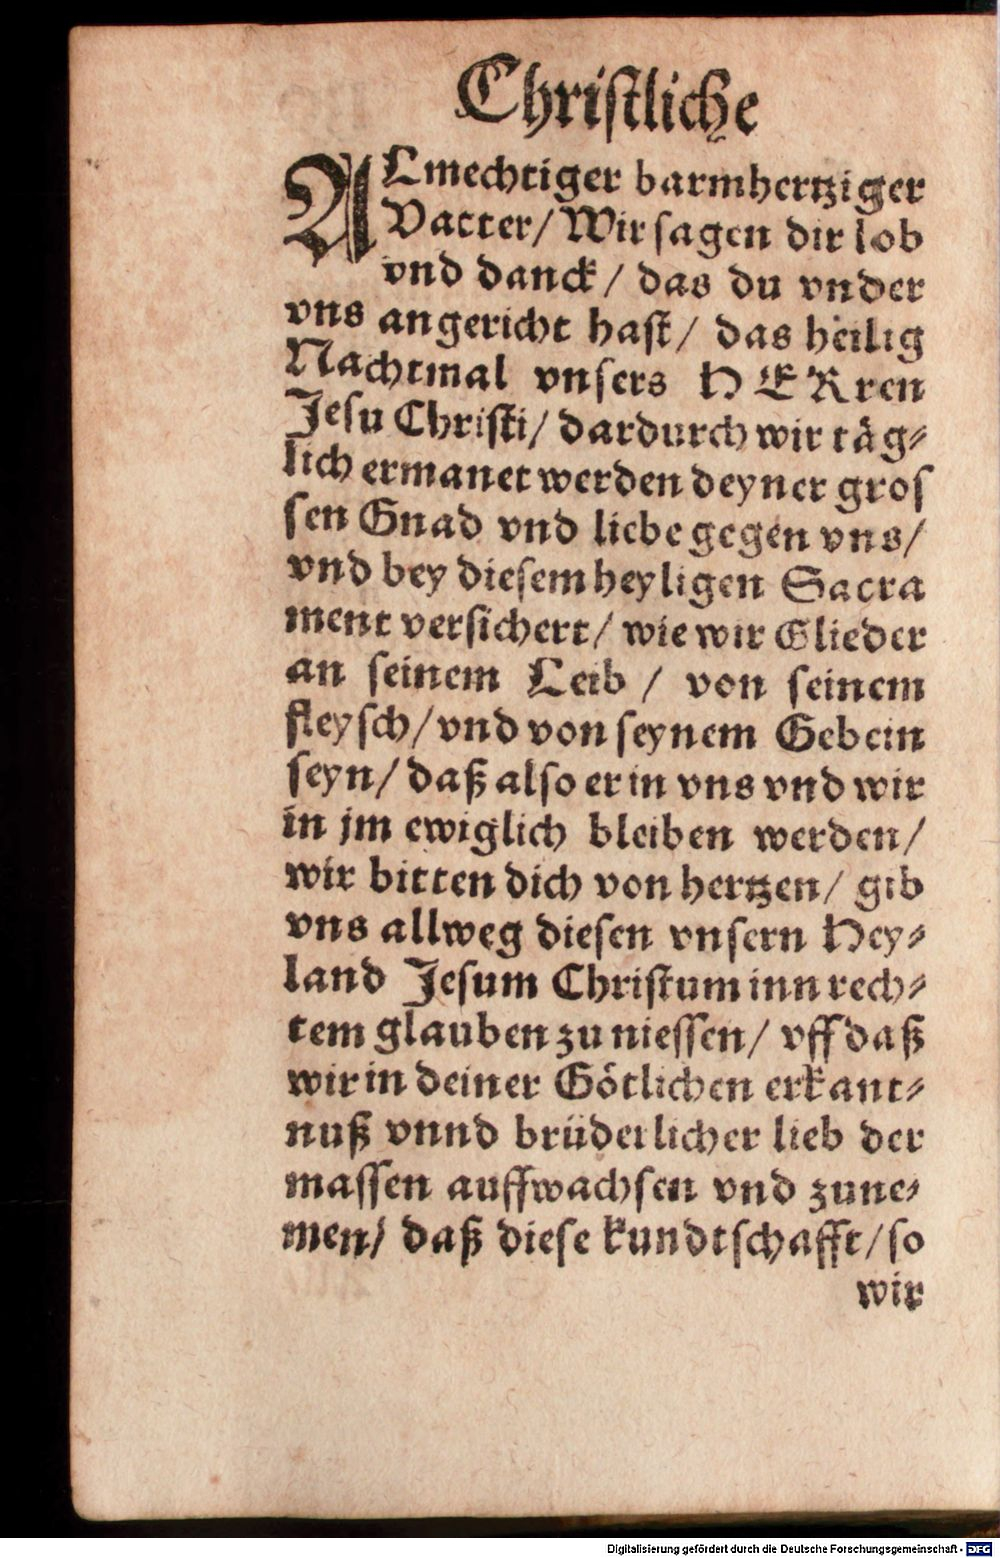 Chriſtliche
ALmechtiger barmhertziger
Vatter/ Wir ſagen dir lob
vnd danck/ das du vnder
vns angericht haſt/ das heilig
Nachtmal vnſers HERren
Jeſu Chriſti/ dardurch wir täg⸗
lich ermanet werden deyner groſ
ſen Gnad vnd liebe gegen vns/
vnd bey dieſem heyligen Sacra
ment verſichert/ wie wir Glieder
an ſeinem Leib/ von ſeinem
fleyſch/ vnd von ſeynem Gebein
ſeyn/ daß alſo er in vns vnd wir
in jm ewiglich bleiben werden/
wir bitten dich von hertzen/ gib
vns allweg dieſen vnſern Hey⸗
land Jeſum Chriſtum inn rech⸗
tem glauben zu nieſſen/ vff daß
wir in deiner Götlichen erkant⸗
nuß vnnd brüderlicher lieb der
maſſen auffwachſen vnd zune⸗
men/ daß dieſe kundtſchafft/ ſo
wir
Digitalisierung gefördert durch die Deutsche Forschungsgemeinschaft - DFG